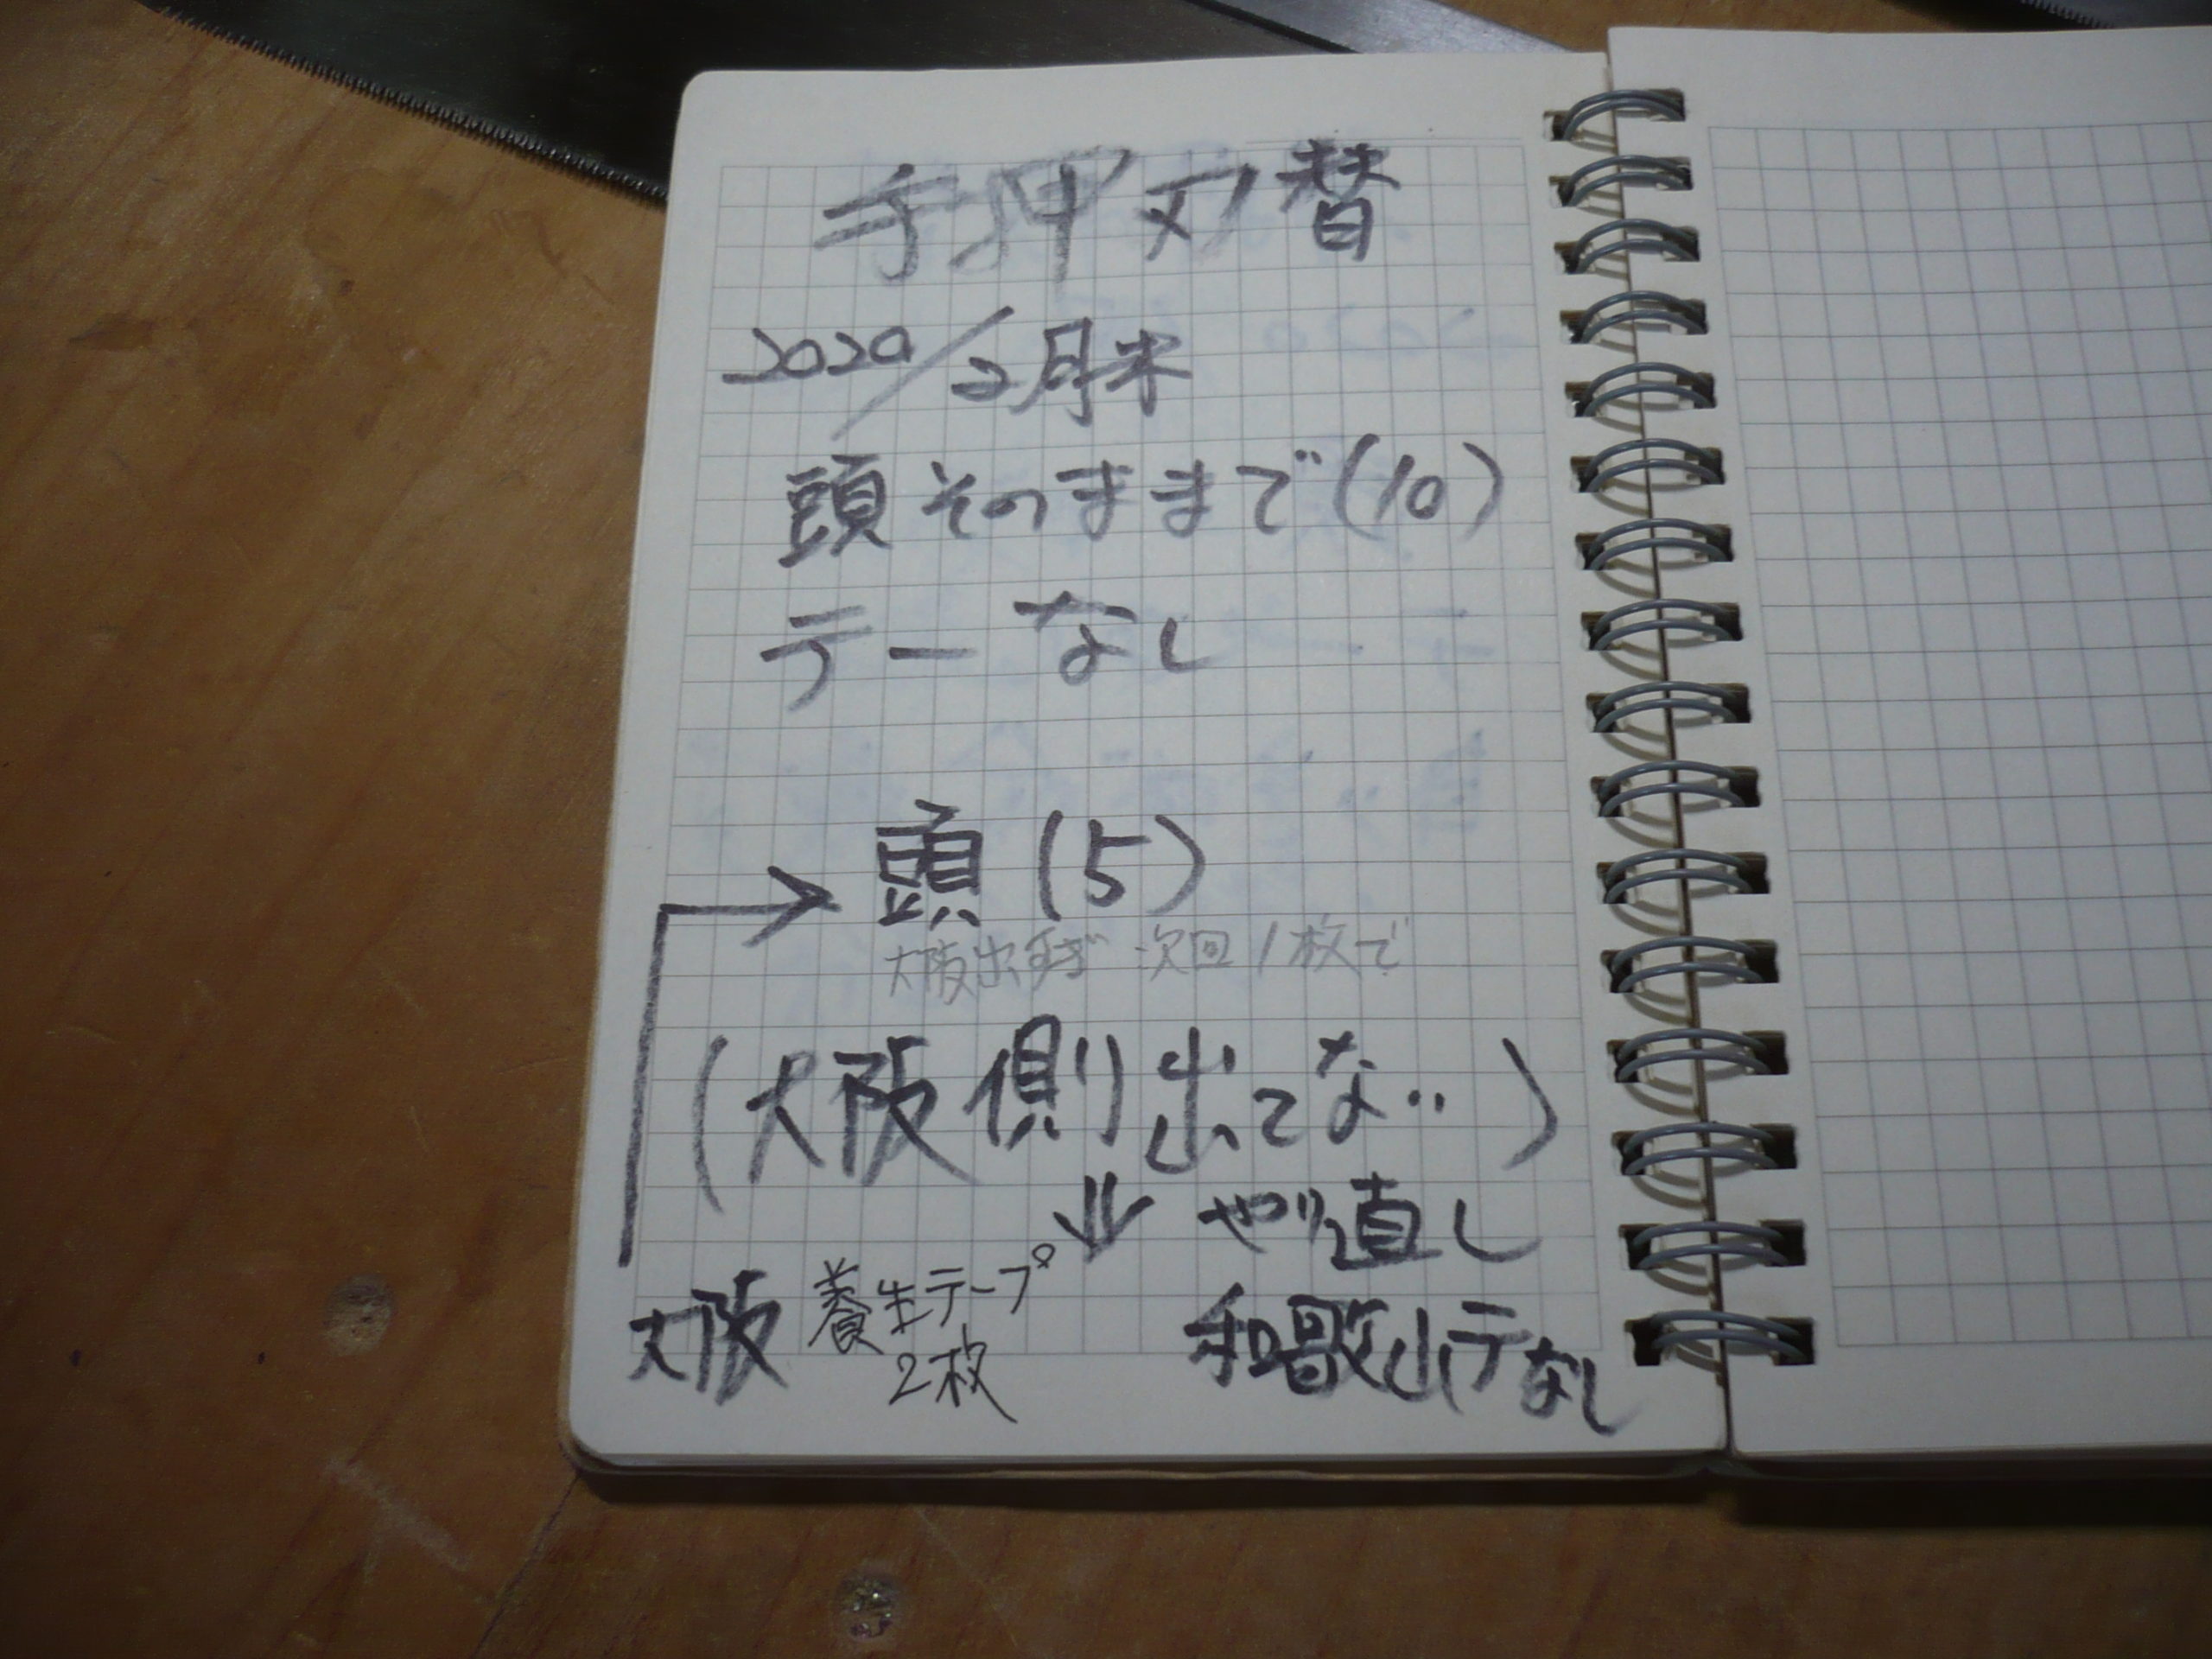 手押刃替
2020/2月末
頭そのままで(10)
テーなし
頭(5)
大阪出すぎ 次回1枚で
(大阪側出てない)
⇓ やり直し
大阪 養生テープ 2枚
和歌山テなし